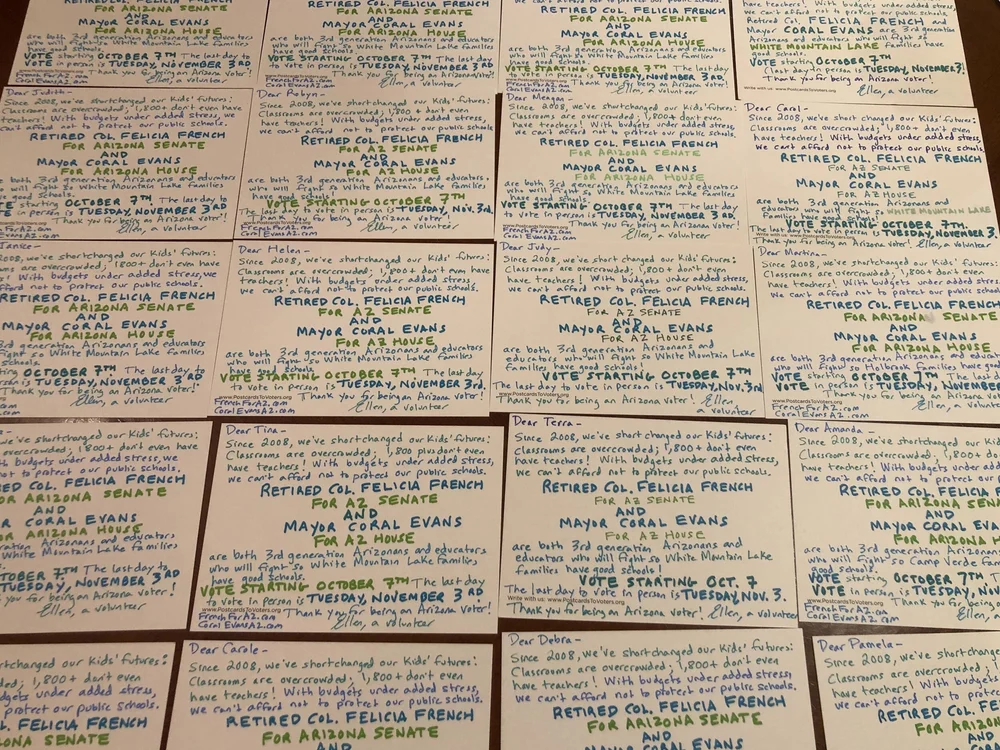 RETIRED COL. FELICIA FRENCH
FOR ARIZONA SENATE
AND
MAYOR CORAL EVANS
FOR ARIZONA HOUSE
are both 3rd generation Arizonans and educators
who will fight so White Mountain Lake families
have good schools.
VOTE starting OCTOBER 7TH The last day to
vote in person is TUESDAY, NOVEMBER 3 RD.
Thank you for being an Arizona voter!
Ellen, a volunteer
RETIRED COL. FELICIA FRENCH
FOR ARIZONA SENATE
AND
MAYOR CORAL EVANS
FOR ARIZONA HOUSE
are both 3rd generation Arizonans and educators
who will fight so White Mountain Lake families
have good schools.
VOTE STARTING OCTOBER 7TH The last day to
vote in person is TUESDAY, NOVEMBER 3 RD.
Thank you for being an Arizona voter!
Ellen, a volunteer
RETIRED COL. FELICIA FRENCH
FOR ARIZONA SENATE
AND
MAYOR CORAL EVANS
FOR ARIZONA HOUSE
are both 3rd generation Arizonans and educators
who will fight so White Mountain Lake families
have good schools.
VOTE STARTING OCTOBER 7TH The last day to
vote in person is TUESDAY, NOVEMBER 3 RD.
Thank you for being an Arizona voter!
Ellen, a volunteer
have teachers! With budgets under added stress,
we can't afford not to protect our public schools.
Retired Col. FELICIA FRENCH and
Mayor CORAL EVANS are 3rd generation
Arizonans and educators who will fight so
WHITE MOUNTAIN LAKE families have
good schools.
VOTE starting OCTOBER 7TH
(last day in person is TUESDAY, NOVEMBER 3)
Thank you for being an Arizona voter!
Write with us: www.PostcardsToVoters.org
Ellen, a volunteer
Dear Judith-
Since 2008, we've shortchanged our Kids' futures:
Classrooms are overcrowded; 1,800+ don't even have
teachers! With budgets under added stress, we
can't afford not to protect our public schools.
RETIRED COL. FELICIA FRENCH
FOR ARIZONA SENATE
AND
MAYOR CORAL EVANS
FOR ARIZONA HOUSE
are both 3rd generation Arizonans and educators
who will fight so White Mountain Lake families
have good schools.
VOTE starting OCTOBER 7TH The last day
to vote in person is TUESDAY, NOVEMBER 3 RD
Thank you for being an Arizona voter!
Ellen, a volunteer
Dear Robyn-
Since 2008, we've shortchanged our Kids' futures:
Classrooms are overcrowded; 1,800+ don't even
have teachers! With budgets under added stress, we
can't afford not to protect our public schools.
RETIRED COL. FELICIA FRENCH
FOR AZ SENATE
AND
MAYOR CORAL EVANS
FOR AZ HOUSE
are both 3rd generation Arizonans and educators.
who will fight so White Mountain Lake families
have good schools.
VOTE STARTING OCTOBER 7TH
The last day to vote in person is TUESDAY, Nov. 3rd.
Thank you for being an Arizona voter!
FrenchForAZ.com
CoralEvansAZ.com
Ellen, a volunteer
Dear Meagan-
Since 2008, we've shortchanged our Kids' futures:
Classrooms are overcrowded; 1,800+ don't even
have teachers! With budgets under added stress,
we can't afford not to protect our public schools.
RETIRED COL. FELICIA FRENCH
FOR ARIZONA SENATE
AND
MAYOR CORAL EVANS
FOR ARIZONA HOUSE
are both 3rd generation Arizonans and educators
who will fight so White Mountain Lake families
have good schools.
VOTE STARTING OCTOBER 7TH The last day
to vote in person is TUESDAY, NOVEMBER 3 RD
Thank you for being an Arizona voter!
FrenchForAZ.com
CoralEvansAZ.com
Ellen, a volunteer
Dear Carol-
Since 2008, we've short changed our Kids' futures:
Classrooms are overcrowded; 1,800+ don't even
have teachers! With budgets under added stress,
we can't afford not to protect our public schools.
RETIRED COL. FELICIA FRENCH
FOR AZ SENATE
AND
MAYOR CORAL EVANS
FOR AZ HOUSE
are both 3rd generation Arizonans and
educators who will fight so WHITE MOUNTAIN LAKE
families have good schools.
VOTE STARTING OCTOBER 7TH.
The last day to vote in person is TUESDAY, NOVEMBER 3.
Thank you for being an Arizona voter!
Ellen, a volunteer
Janice-
2008, we've shortchanged our Kids' futures:
oms are overcrowded; 1800+ don't have
With budgets under added stress, we
fford not to protect our public schools.
RETIRED COL. FELICIA FRENCH
FOR ARIZONA SENATE
AND
MAYOR CORAL EVANS
FOR ARIZONA HOUSE
3rd generation Arizonans and educators
fight so White Mountain Lake families
schools.
OCTOBER 7TH The last day to
is TUESDAY, NOVEMBER 3 RD
Thank you for being an Arizona voter!
Ellen, a volunteer
Dear Helen-
Since 2008, we've shortchanged our Kids' futures:
Classrooms are overcrowded; 1,800+ don't even have
teachers! With budgets under added stress,
we can't afford not to protect our public schools.
RETIRED COL. FELICIA FRENCH
FOR AZ SENATE
AND
MAYOR CORAL EVANS
FOR AZ HOUSE
are both 3rd generation Arizonans and educators
who will fight so White Mountain Lake families
have good schools.
VOTE STARTING OCTOBER 7TH The last day
to vote in person is TUESDAY, NOVEMBER 3rd.
www.PostcardsToVoters.org
Thank you for being an Arizona voter!
FrenchForAZ.com
CoralEvansAZ.com
Ellen, a volunteer
Dear Judy-
Since 2008, we've shortchanged our Kids' futures:
Classrooms are overcrowded; 1,800+ don't even
have teachers! With budgets under added stress,
we can't afford not to protect our public schools.
RETIRED COL. FELICIA FRENCH
FOR AZ SENATE
AND
MAYOR CORAL EVANS
FOR AZ HOUSE
are both 3rd generation Arizonans and
educators who will fight so White Mountain Lake
families have good schools.
VOTE STARTING OCTOBER 7TH
The last day to vote in person is TUESDAY, NOV. 3rd
www.PostcardsToVoters.org
Thank you for being an Arizona voter!
Ellen,
a volunteer
Dear Martina-
Since 2008, we've shortchanged our Kids' futures:
Classrooms are overcrowded; 1,800+ don't even
have teachers! With budgets under added stress,
we can't afford not to protect our public schools
RETIRED COL. FELICIA FRENCH
FOR ARIZONA SENATE
AND
MAYOR CORAL EVANS
FOR ARIZONA HOUSE
are both 3rd generation Arizonans and educators
who will fight so Holbrook families have good
schools.
VOTE starting OCTOBER 7TH The last day to
VOTE in person is TUESDAY, NOVEMBER
Thank you for being an Arizona voter!
www.PostcardsToVoters.org
FrenchForAZ.com
CoralEvansAZ.com
Ellen, a volunteer
we've shortchanged our Kids' futures:
overcrowded; 1,800+ don't even have
With budgets under added stress, we
to protect our public schools.
COL. FELICIA FRENCH
FOR ARIZONA SENATE
AND
CORAL EVANS
FOR ARIZONA HOUSE
generation Arizonans and educators
White Mountain Lake families
OCTOBER 7. TH The last day to
TUESDAY, NOVEMBER 3 RD
you for being an Arizona voter!
Ellen, a volunteer
Dear Tina-
Since 2008, we've shortchanged our Kids' futures:
Classrooms are overcrowded; 1,800 plus don't even
have teachers! With budgets under added stress,
we can't afford not to protect our public schools.
RETIRED COL. FELICIA FRENCH
FOR AZ SENATE
AND
MAYOR CORAL EVANS
FOR AZ HOUSE
are both 3rd generation Arizonans and educators
who will fight so White Mountain Lake families
have good schools.
VOTE STARTING OCTOBER 7TH The last day
to vote in person is TUESDAY, NOVEMBER 3 RD
www.PostcardsToVoters.org
Thank you for being an Arizona voter!
FrenchForAZ.com
CoralEvansAZ.com
Ellen, a volunteer
Dear Terra-
Since 2008, we've shortchanged our Kids' futures:
Classrooms are overcrowded; 1,800+ don't even
have teachers! With budgets under added stress,
we can't afford not to protect our public schools.
RETIRED COL. FELICIA FRENCH
FOR AZ SENATE
AND
MAYOR CORAL EVANS
FOR AZ HOUSE
are both 3rd generation Arizonans and
educators who will fight so White Mountain Lake
families have good schools!
VOTE STARTING OCT. 7
The last day to vote in person is TUESDAY, NOV. 3.
Write with us: www.PostcardsToVoters.org
Thank you for being an Arizona voter!
Ellen, a volunteer
Dear Amanda-
Since 2008, we've shortchanged our
Classrooms are overcrowded; 1,800+ do
have teachers! With budgets under add
we can't afford not to protect our p
RETIRED COL. FELICIA F
FOR ARIZONA SEN
AND
MAYOR CORAL EVA
FOR ARIZONA H
are both 3rd generation Arizonans
who will fight so Camp Verde fam
good schools.
VOTE starting OCTOBER 7TH
to vote in person is TUESDAY, NO
www.PostcardsToVoters.org
Thank you for being an Ar
FrenchForAZ.com
CoralEvansAZ.com
Ellen,
we've shortchanged our Kids' futures:
ded; 1,800+ don't even
budgets under added stress,
protect our public schools.
COL. FELICIA FRENCH
ARIZONA SENATE
Dear Carole-
Since 2008, we've shortchanged our Kids' futures:
Classrooms are overcrowded; 1,800+ don't even
have teachers! With budgets under added stress,
we can't afford not to protect our public schools.
RETIRED COL. FELICIA FRENCH
FOR ARIZONA SENATE
AND
Dear Debra-
Since 2008, we've shortchanged our Kids' futures:
Classrooms are overcrowded; 1,800+ don't even
have teachers! With budgets under added stress,
we can't afford not to protect our public schools.
RETIRED COL. FELICIA FRENCH
FOR ARIZONA SENATE
AND
Dear Pamela-
Since 2008, we've shortchanged
Classrooms are overcrowded; 1
have teachers! With budgets
we can't afford not to protect
RETIRED COL. FELICIA
FOR ARIZON